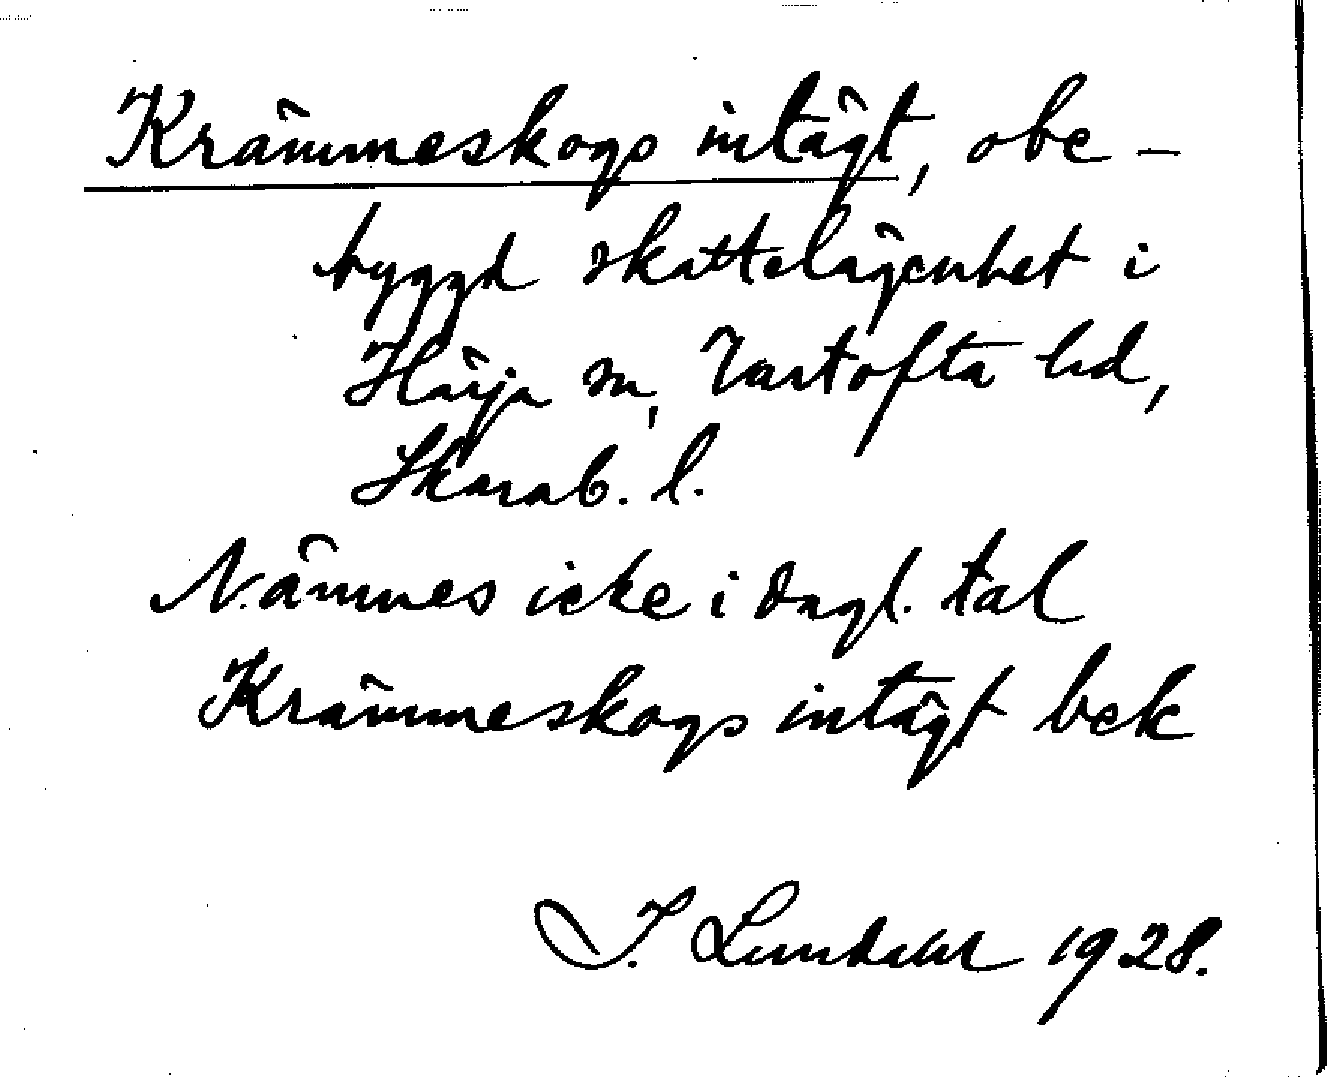 Krämmeskogs intägt, obe-
byggd skattelägenhet i
Härja sn, Vartofta hd,
Skarab. l.
Nämnes icke i dagl. tal
Krämmeskogs intägt bek
I. Lundahl 1928.